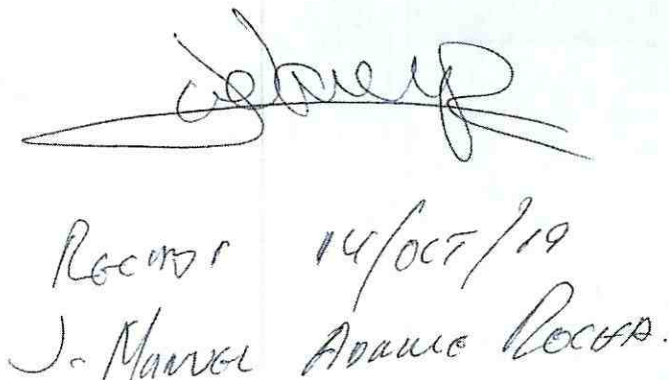 Recibí 14/OCT/19
J. Manuel Adame Rocha.